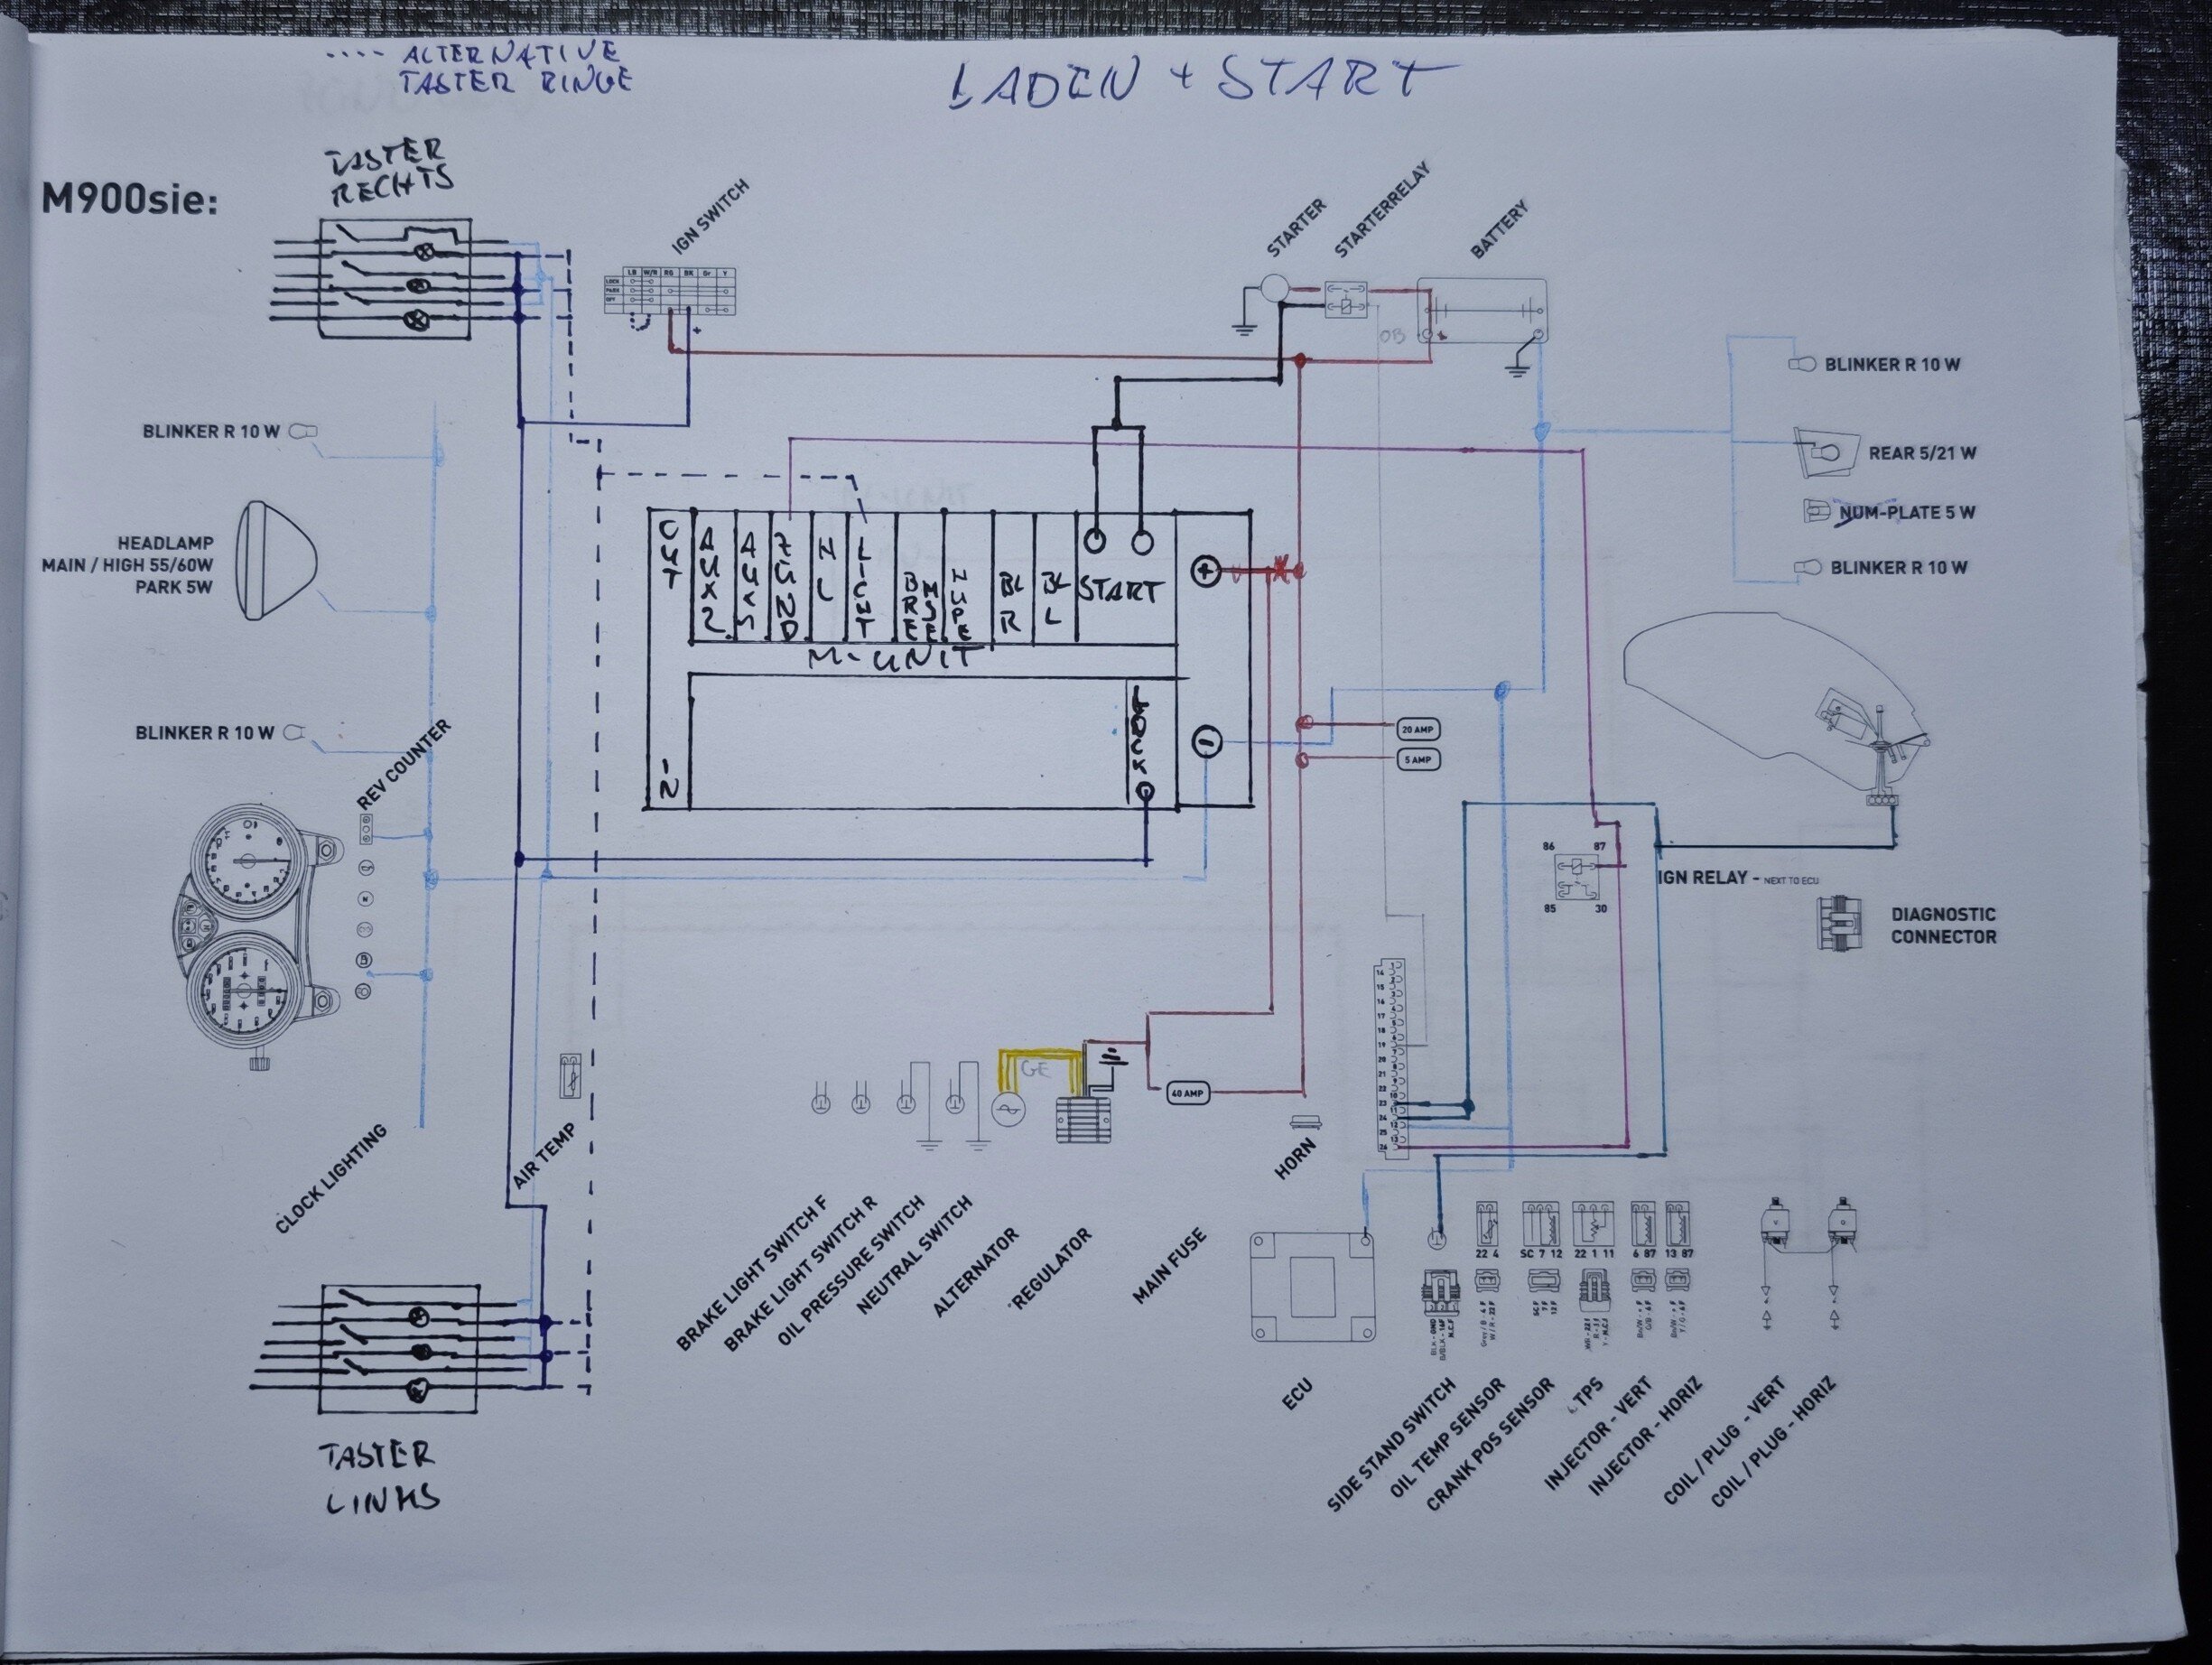 .... ALTERNATIVE
TASTER RINGE
LADEN + START
TASTER
RECHTS
M900sie:
IGN SWITCH
LB W/R RG BK Gr Y
LOCK
PARK
OFF
+
STARTER
STARTERRELAY
BATTERY
OB
+
BLINKER R 10 W
BLINKER R 10 W
HEADLAMP
MAIN / HIGH 55/60W
PARK 5W
REAR 5/21 W
NUM-PLATE 5 W
BLINKER R 10 W
OUT
AUX2
ZÜND
LICHT
BREMSE
HUPE
BL R
BL L
START
+
M-UNIT
LOCK
IN
-
BLINKER R 10 W
REV COUNTER
20 AMP
5 AMP
86 87
85 30
IGN RELAY - NEXT TO ECU
DIAGNOSTIC
CONNECTOR
GE
40 AMP
14
15
16
17
18
19
20
21
22
23
24
25
26
CLOCK LIGHTING
AIR TEMP
BRAKE LIGHT SWITCH F
BRAKE LIGHT SWITCH R
OIL PRESSURE SWITCH
NEUTRAL SWITCH
ALTERNATOR
REGULATOR
MAIN FUSE
HORN
ECU
22 4
SC 7 12
22 1 11
6 87
13 87
SIDE STAND SWITCH
OIL TEMP SENSOR
CRANK POS SENSOR
TPS
INJECTOR - VERT
INJECTOR - HORIZ
COIL / PLUG - VERT
COIL / PLUG - HORIZ
TASTER
LINKS